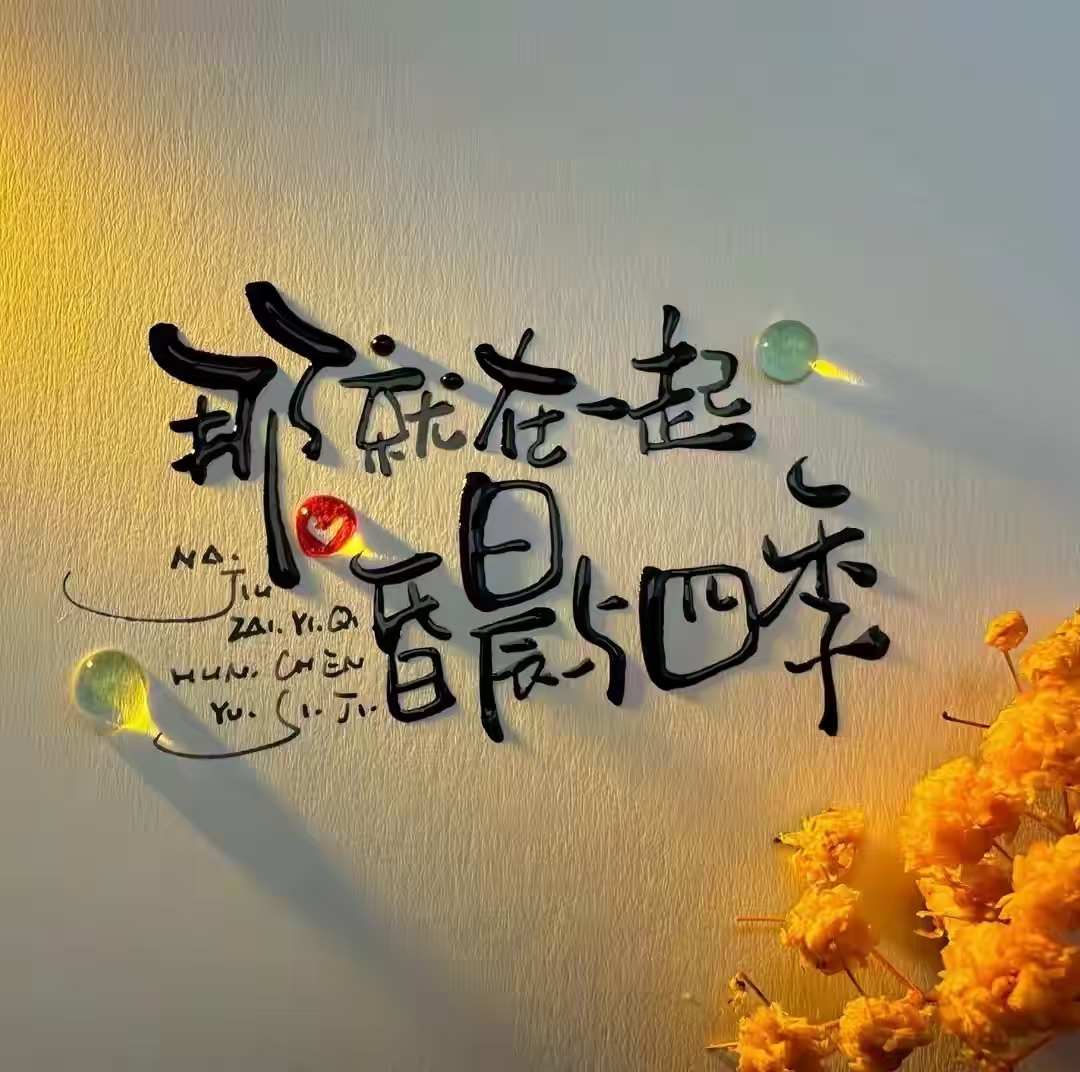 那就在一起
昏晨与四季
NA.
JIU
ZAI.YI.QI
HUN.CHEN
YU.SI.JI.